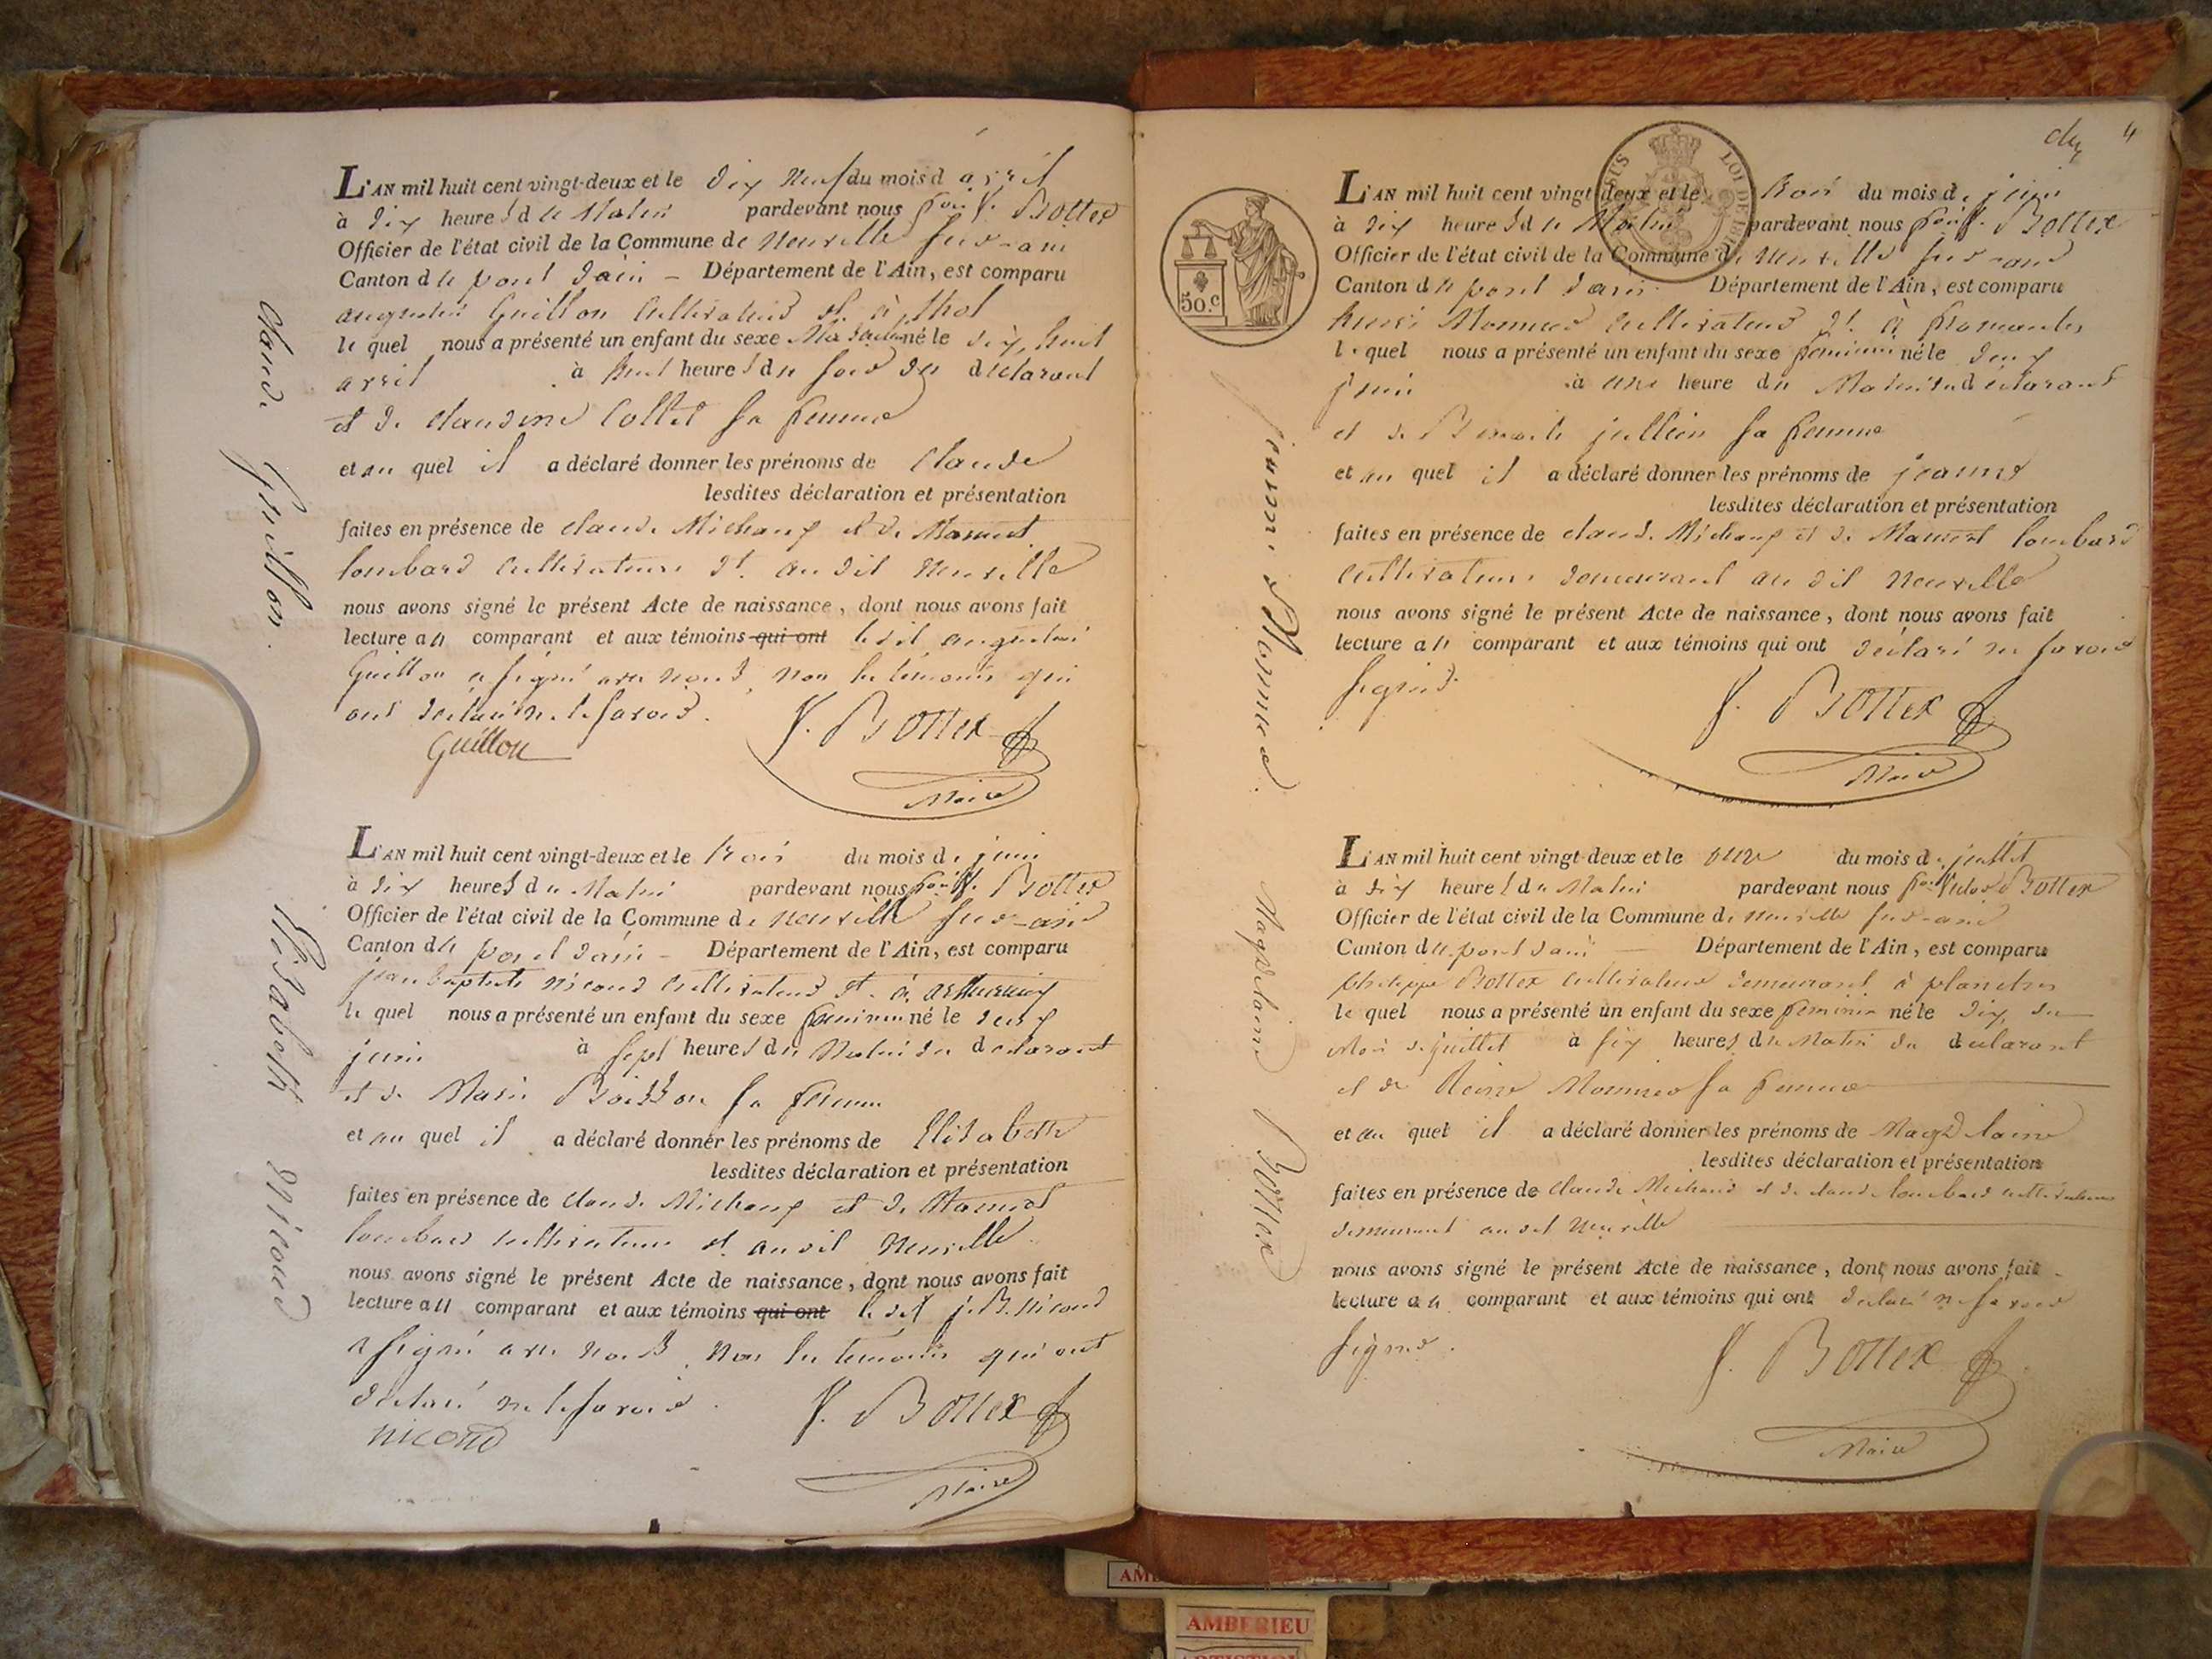 Claude Guillon.
L'AN mil huit cent vingt-deux et le dix neuf du mois d'avril
à dix heures du Matin pardevant nous Bottex
Officier de l'état civil de la Commune de Neuville sur-ain
Canton du pont dain – Département de l'Ain, est comparu
augustin Guillon Cultivateur dt. à thol
le quel nous a présenté un enfant du sexe Masculin né le dix huit
avril à huit heures du soir du declarant
et de claudine Collet sa femme
et au quel il a déclaré donner les prénoms de Claude
lesdites déclaration et présentation
faites en présence de claude Michaux et de Mamert
lombard Cultivateurs dt. au dit Neuville
nous avons signé le présent Acte de naissance, dont nous avons fait
lecture au comparant et aux témoins qui ont ledit augustin
Guillon a signé avec nous, non les témoins qui
ont déclaré ne le savoir.
Guillon
Bottex
Maire
Elisabeth Nicoud
L'AN mil huit cent vingt-deux et le trois du mois de juin
à dix heures du Matin pardevant nous Bottex
Officier de l'état civil de la Commune de Neuville sur-ain
Canton du pont dain – Département de l'Ain, est comparu
jean baptiste nicoud Cultivateur dt. à
le quel nous a présenté un enfant du sexe feminin né le deux
juin à sept heures du Matin du declarant
et de Marie Boisson sa femme
et au quel il a déclaré donner les prénoms de Elisabeth
lesdites déclaration et présentation
faites en présence de claude Michaux et de Mamert
lombard cultivateurs dt. au dit Neuville
nous avons signé le présent Acte de naissance, dont nous avons fait
lecture au comparant et aux témoins qui ont le dit j. B. Nicoud
a signé avec nous, non les témoins qui ont
déclaré ne le savoir.
nicoud
Bottex
Maire
4
50.c
LOI DE
Jeanne Monnier.
L'AN mil huit cent vingt-deux et le trois du mois de juin
à dix heures du Matin pardevant nous Bottex
Officier de l'état civil de la Commune de Neuville sur-ain
Canton du pont dain. Département de l'Ain, est comparu
henri Monnier cultivateur dt. à fromentes
le quel nous a présenté un enfant du sexe feminin né le deux
juin à une heure du Matin du déclarant
et de jullien sa femme
et au quel il a déclaré donner les prénoms de jeanne
lesdites déclaration et présentation
faites en présence de claude Michaux et de Mamert lombard
Cultivateurs demeurant au dit Neuville
nous avons signé le présent Acte de naissance, dont nous avons fait
lecture au comparant et aux témoins qui ont déclaré ne savoir
signer.
Bottex
Maire
Magdelaine Bottex
L'AN mil huit cent vingt-deux et le onze du mois de juillet
à dix heures du Matin pardevant nous Bottex
Officier de l'état civil de la Commune de Neuville sur-ain
Canton du pont dain Département de l'Ain, est comparu
philippe Bottex cultivateur demeurant à planches
le quel nous a présenté un enfant du sexe feminin né le dix du
Mois de juillet à six heures du Matin du declarant
et de Reine Monnier sa femme
et au quel il a déclaré donner les prénoms de Magdelaine
lesdites déclaration et présentation
faites en présence de claude Michaud et de claude lombard cultivateurs
demeurant au dit Neuville
nous avons signé le présent Acte de naissance, dont nous avons fait
lecture au comparant et aux témoins qui ont déclaré ne savoir
signer.
Bottex
Maire
AMBERIEU